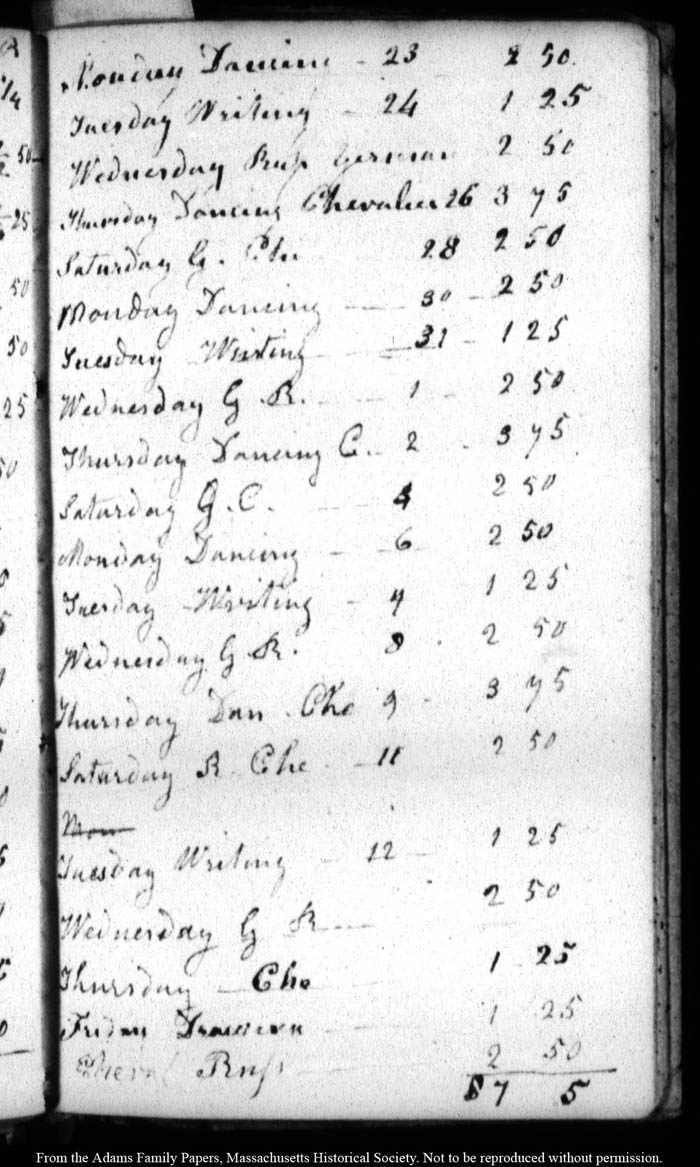 Monday Dancing - 23 2 50
Tuesday Writing - 24 1 25
Wednesday Rus German 2 50
Thursday Dancing Chevalier 26 3 75
Saturday G. Che 28 2 50
Monday Dancing 30 - 2 50
Tuesday Writing 31 - 1 25
Wednesday G R. 1 - 2 50
Thursday Dancing C. 2 3 75
Saturday G. C. 4 2 50
Monday Dancing - 6 2 50
Tuesday Writing - 7 1 25
Wednesday G R. 8 2 50
Thursday Dan Che 9 3 75
Saturday R Che - 11 2 50
Mon
Tuesday Writing - 12 - 1 25
Wednesday G R 2 50
Thursday Che 1 25
Friday 1 25
Russ 2 50
7 5
From the Adams Family Papers, Massachusetts Historical Society. Not to be reproduced without permission.